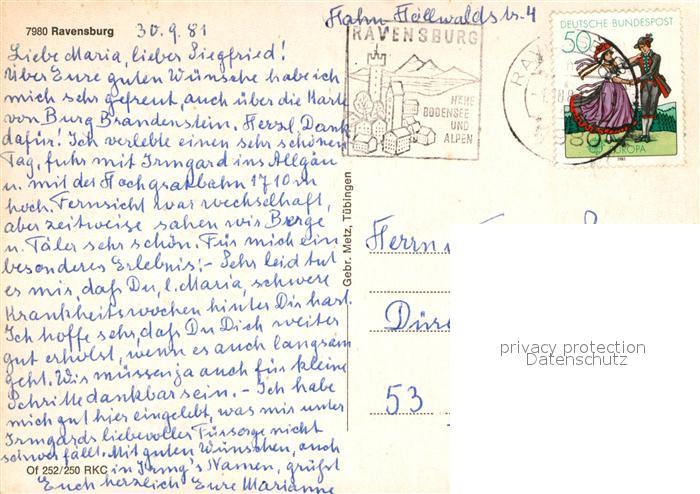 Hahn Höllwaldstr. 4
7980 Ravensburg 30.9.81
Liebe Maria, lieber Siegfried!
Über Eure guten Wünsche habe ich
mich sehr gefreut, auch über die Karte
von Burg Brandenstein. Herzl. Dank
dafür! Ich verlebte einen sehr schönen
Tag, fuhr mit Irmgard ins Allgäu
u. mit der Hochgratbahn 1710 m
hoch. Fernsicht war wechselhaft,
aber zeitweise sahen wir Berge
u. Täler sehr schön. Für mich ein
besonderes Erlebnis. - Sehr leid tut
es mir, daß Du, l. Maria, schwere
Krankheitswochen hinter Dir hast.
Ich hoffe sehr, daß Du Dich weiter
gut erholst, wenn es auch langsam
geht. Wir müssen ja auch für kleine
Schritte dankbar sein. - Ich habe
mich gut hier eingelebt, was mir unter
Irmgards liebevoller Fürsorge nicht
schwer fällt. Mit guten Wünschen, auch
in Irmg's Namen, grüßt
Euch herzlich Eure Marianne
Of 252/250 RKC
Gebr. Metz, Tübingen
RAVENSBURG
NAHE
BODENSEE
UND
ALPEN
DEUTSCHE BUNDESPOST
50
EUROPA
Herrn
Düre
53
privacy protection
Datenschutz